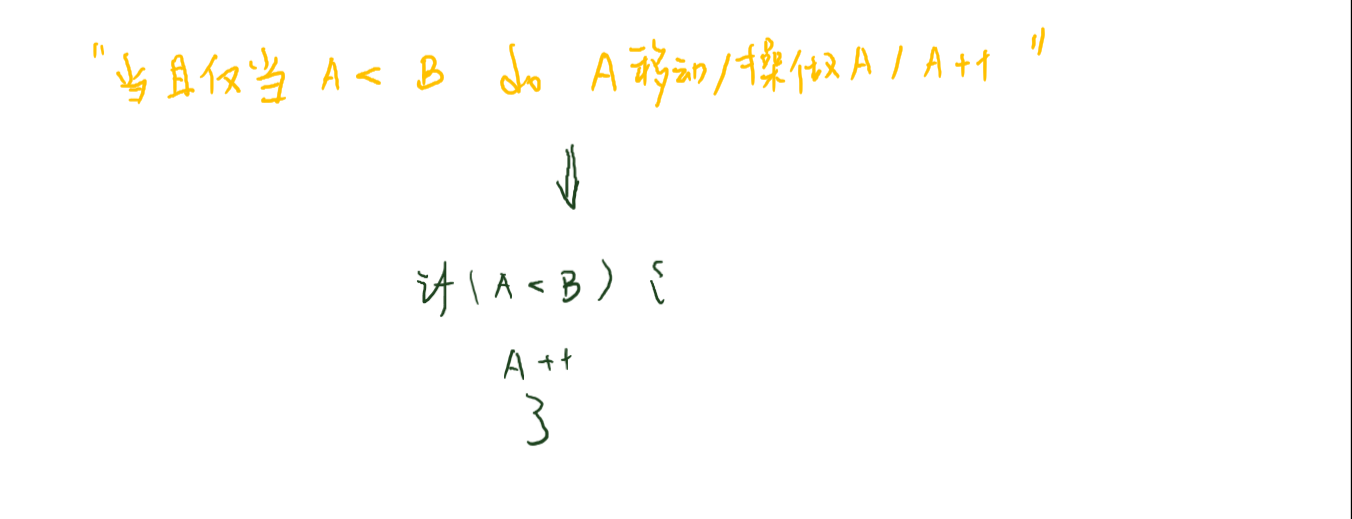 "当且仅当 A < B do A移动/操做A / A++"
if (A < B) {
A++
}